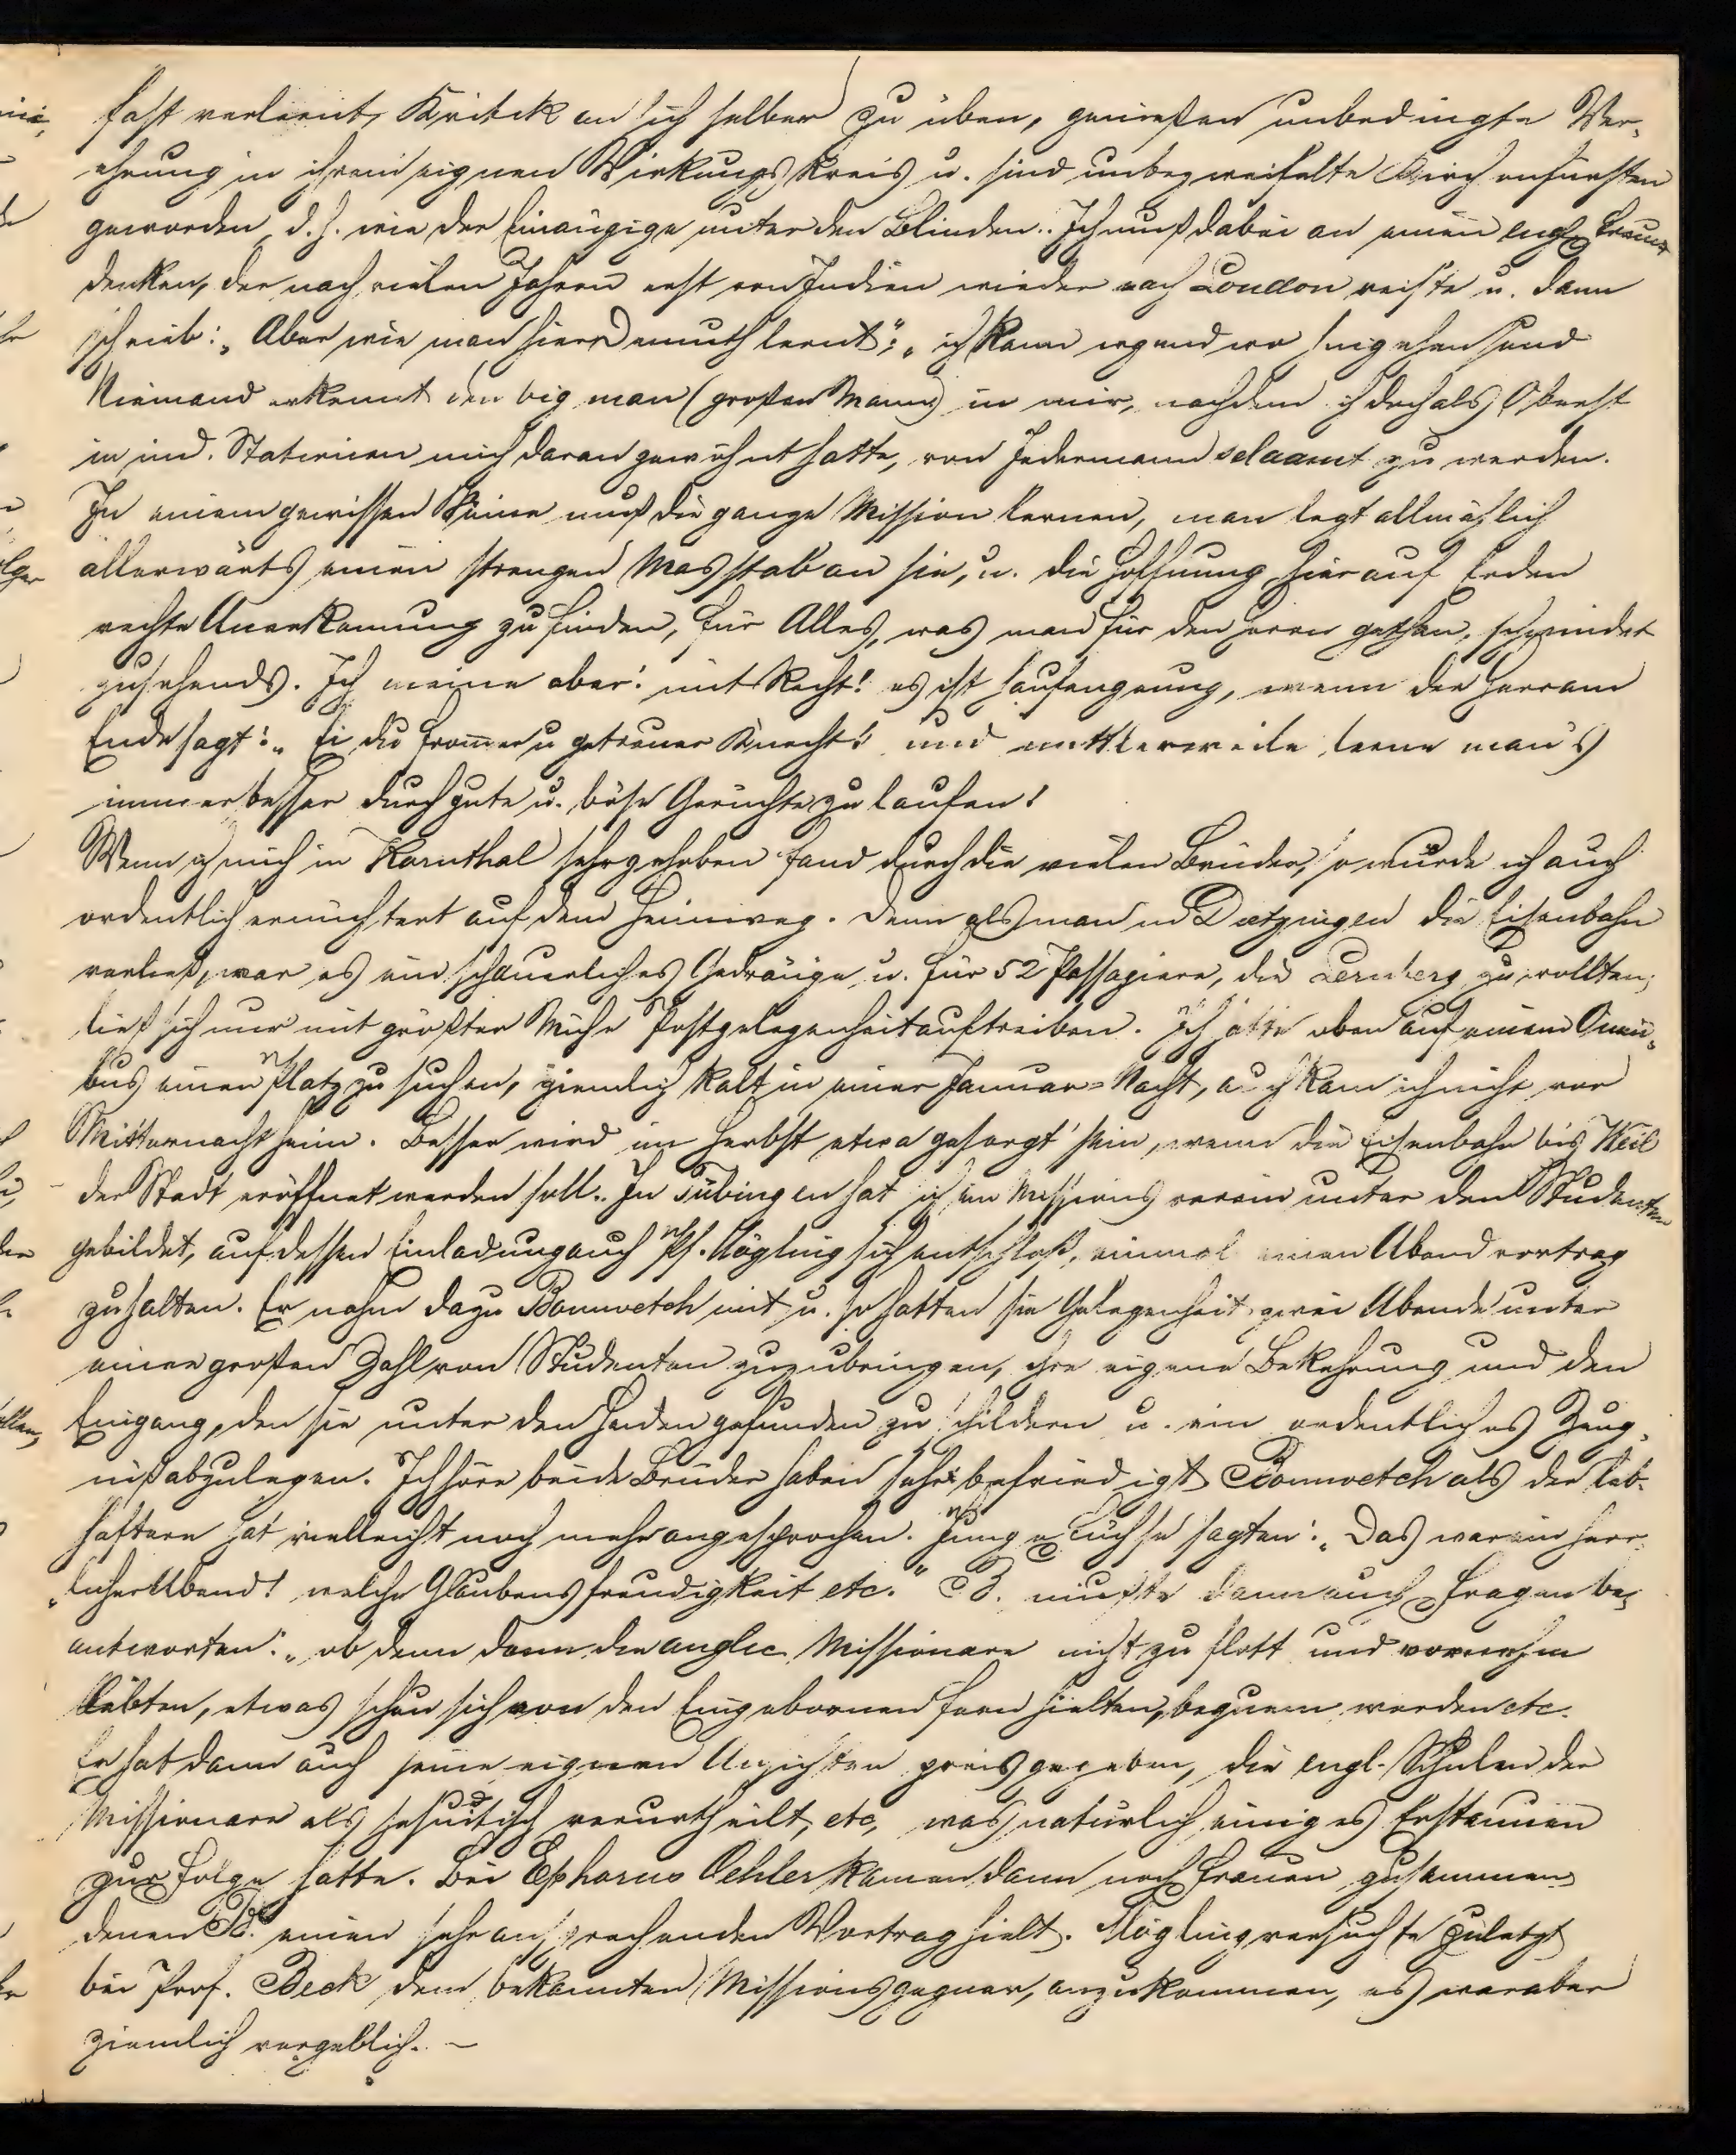 fast verlernt, Kritik an sich selber zu üben, genießen unbedingte Ver-
ehrung in ihrem eignen Wirkungskreis u. sind unbezweifelte Kirchenfürsten
geworden, d. h. wie der Einäugige unter den Blinden. Ich muß dabei an einen engl. Freund
denken, der nach vielen Jahren erst von Indien wieder nach London reiste u. dann
schrieb: „Aber wie man hier Demuth lernt", „ich kann irgendwo hingehen und
Niemand erkennt den big man (großen Mann) in mir, nachdem ich doch als Oberst
in ind. Stationen mich daran gewöhnt hatte, von Jedermann selaamt zu werden.
In einem gewissen Sinne muß die ganze Mission lernen, man legt allmählich
allerwärts einen strengen Masstab an sie, u. die Hoffnung hier auf Erden
rechte Anerkennung zu finden, für Alles, was man für den Herrn gethan, schwindet
zusehends. Ich meine aber: mit Recht! es ist hauf genung, wenn der Herr am
Ende sagt: „Ei du frommer u getreuer Knecht!" und mittlerweile lerne man's
immer besser durch gute u. böse Gerüchte zu laufen!
Wenn ich mich in Kornthal sehr gehoben fand durch die vielen Brüder, so wurde ich auch
ordentlich ernüchtert auf dem Heimweg. Denn als man in Ditzingen die Eisenbahn
verließ, war es ein schauerliches Gedränge, u. für 52 Passagiere, die zu wollten,
ließ sich nur mit größter Mühe Postgelegenheit auftreiben. Ich hatte oben auf einem Omni-
bus einen Platz zu suchen, ziemlich kalt in einer Januar-Nacht, auch kam ich nicht vor
Mitternacht heim. Besser wird im Herbst etwa gesorgt sein, wenn die Eisenbahn bis Weil
der Stadt eröffnet werden soll. In Tübingen hat sich ein Missionsverein unter den Studenten
gebildet, auf dessen Einladung auch Pf. Mögling sich entschloß, einmal einen Abendvortrag
zu halten. Er nahm dazu Bomwetch mit u. so hatten sie Gelegenheit zwei Abende unter
einer großen Zahl von Studenten zuzubringen, ihre eigene Bekehrung und den
Eingang, den sie unter den Heiden gefunden zu schildern u. ein ordentliches Zeug-
niß abzulegen. Ich höre beide Brüder haben sehr befriedigt, Bomwetch als der leb-
haftere hat vielleicht noch mehr angesprochen. Junge Füchse sagten: „Das war ein herr-
„licher Abend! welche Glaubensfreudigkeit etc." B. mußte dann auch Fragen be-
antworten: „ob denn dann die anglic Missionare nicht zu flott und vornehm
lebten, etwas scheu sich von den Eingebornen fern hielten, bequem werden etc.
Er hat dann auch seine eigenen Ansichten preisgegeben, die engl. Schulen der
Missionare als jesuitisch verurtheilt, etc, was natürlich einiges Erstaunen
zur Folge hatte. Bei Ephorus Oehler kamen dann noch Frauen zusammen
denen B. einen sehr ansprechenden Vortrag hielt. Mögling versuchte zuletzt
bei Prof. Beck dem bekannten Missionsgegner, anzukommen, es war aber
ziemlich vergeblich. –